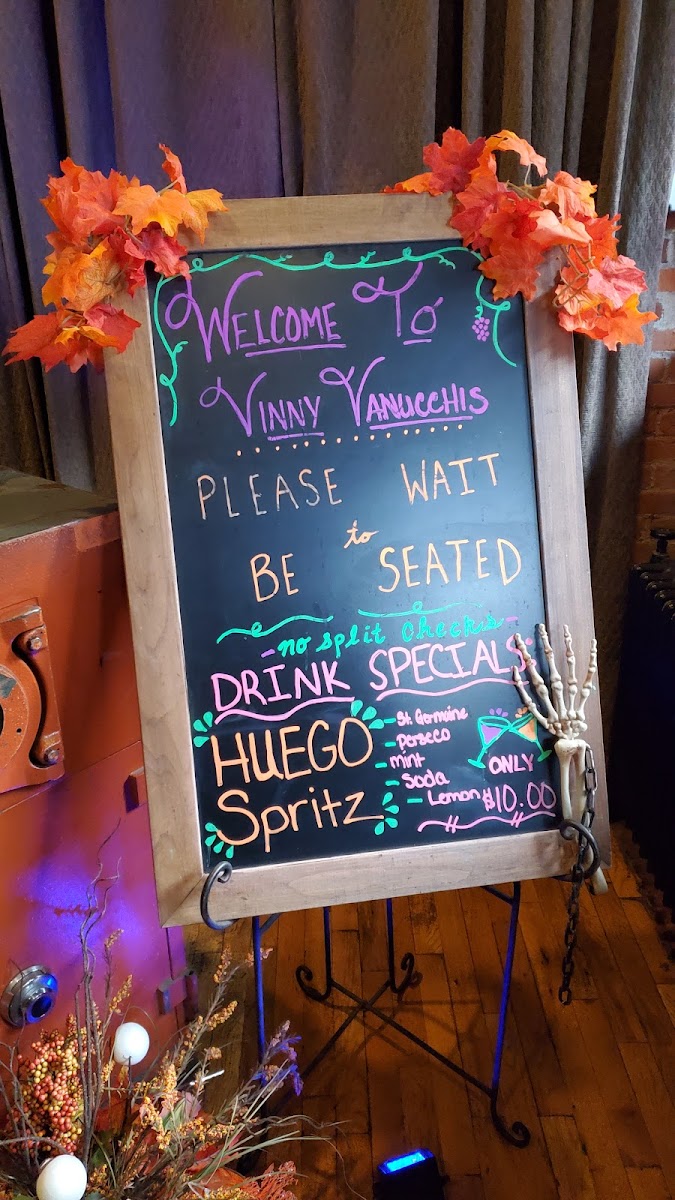 WELCOME TO
VINNY VANUCCHIS
PLEASE WAIT
to
BE SEATED
no split checks
DRINK SPECIALS:
HUEGO
Spritz
- St. Germaine
- perseco
- mint
- Soda
- Lemon
ONLY
$10.00